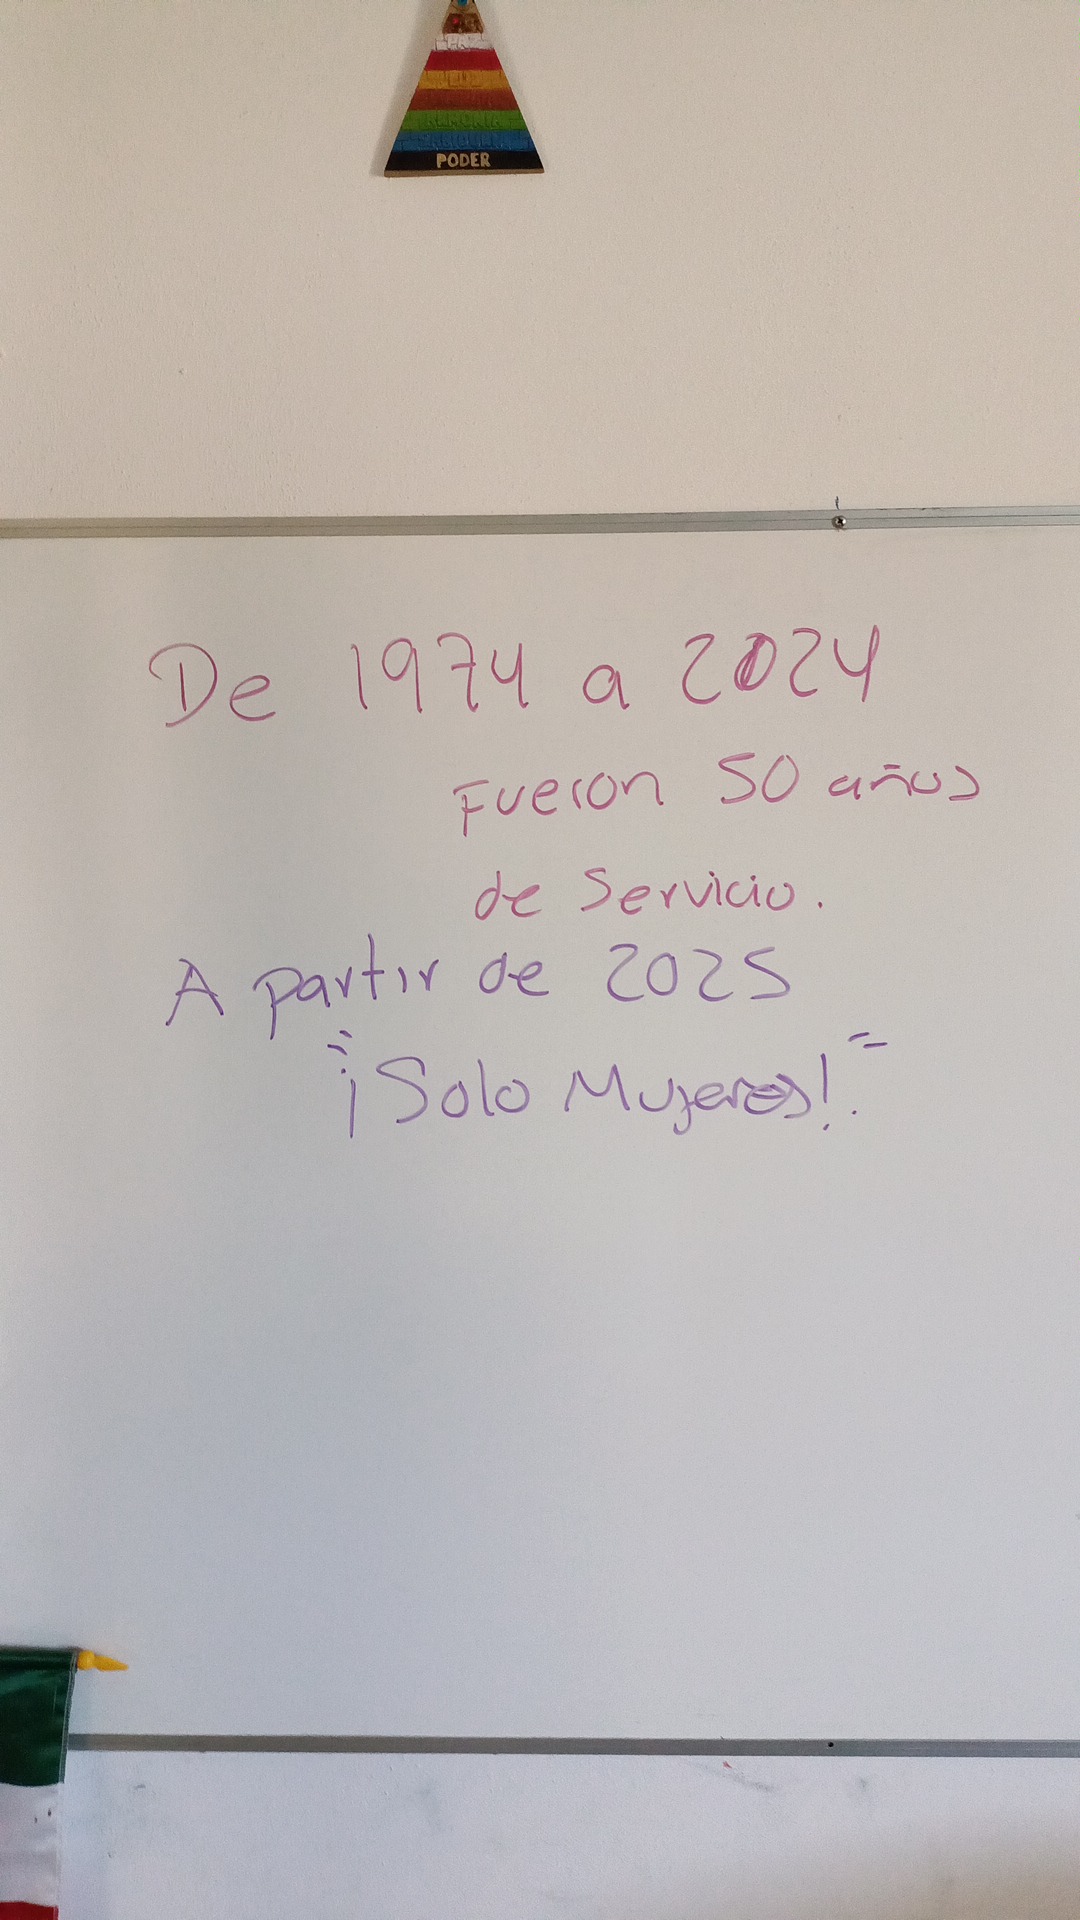 PAZ
LUZ
ARMONIA
PODER
De 1974 a 2024
Fueron 50 años
de Servicio.
A partir de 2025
"¡Solo Mujeres!."